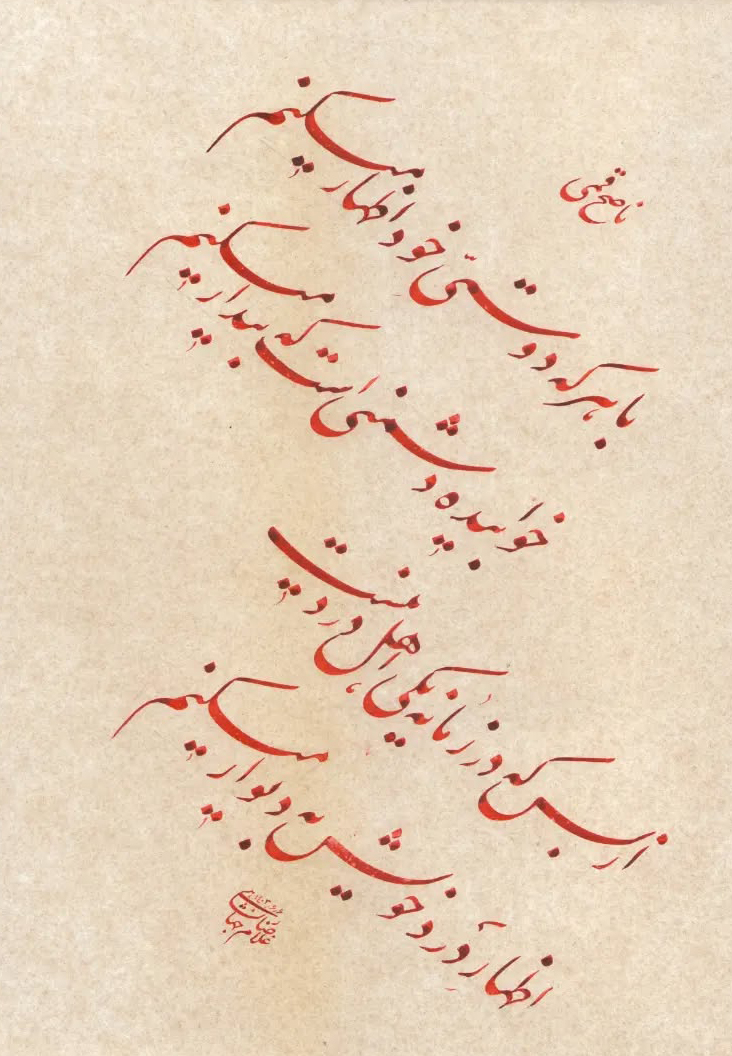 ناصح قمی
با هر که دوستیّ خود اظهار میکنیم
خوابیده دشمنی است که بیدار میکنیم
از بس که در زمانه یکی اهل درد نیست
اظهار درد خویش به دیوار میکنیم